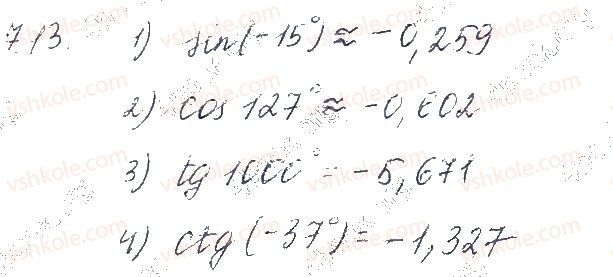 713. 1) sin(-15°) ≈ -0,259
2) cos 127° ≈ -0,602
3) tg 1000° = -5,671
4) ctg(-37°) = -1,327